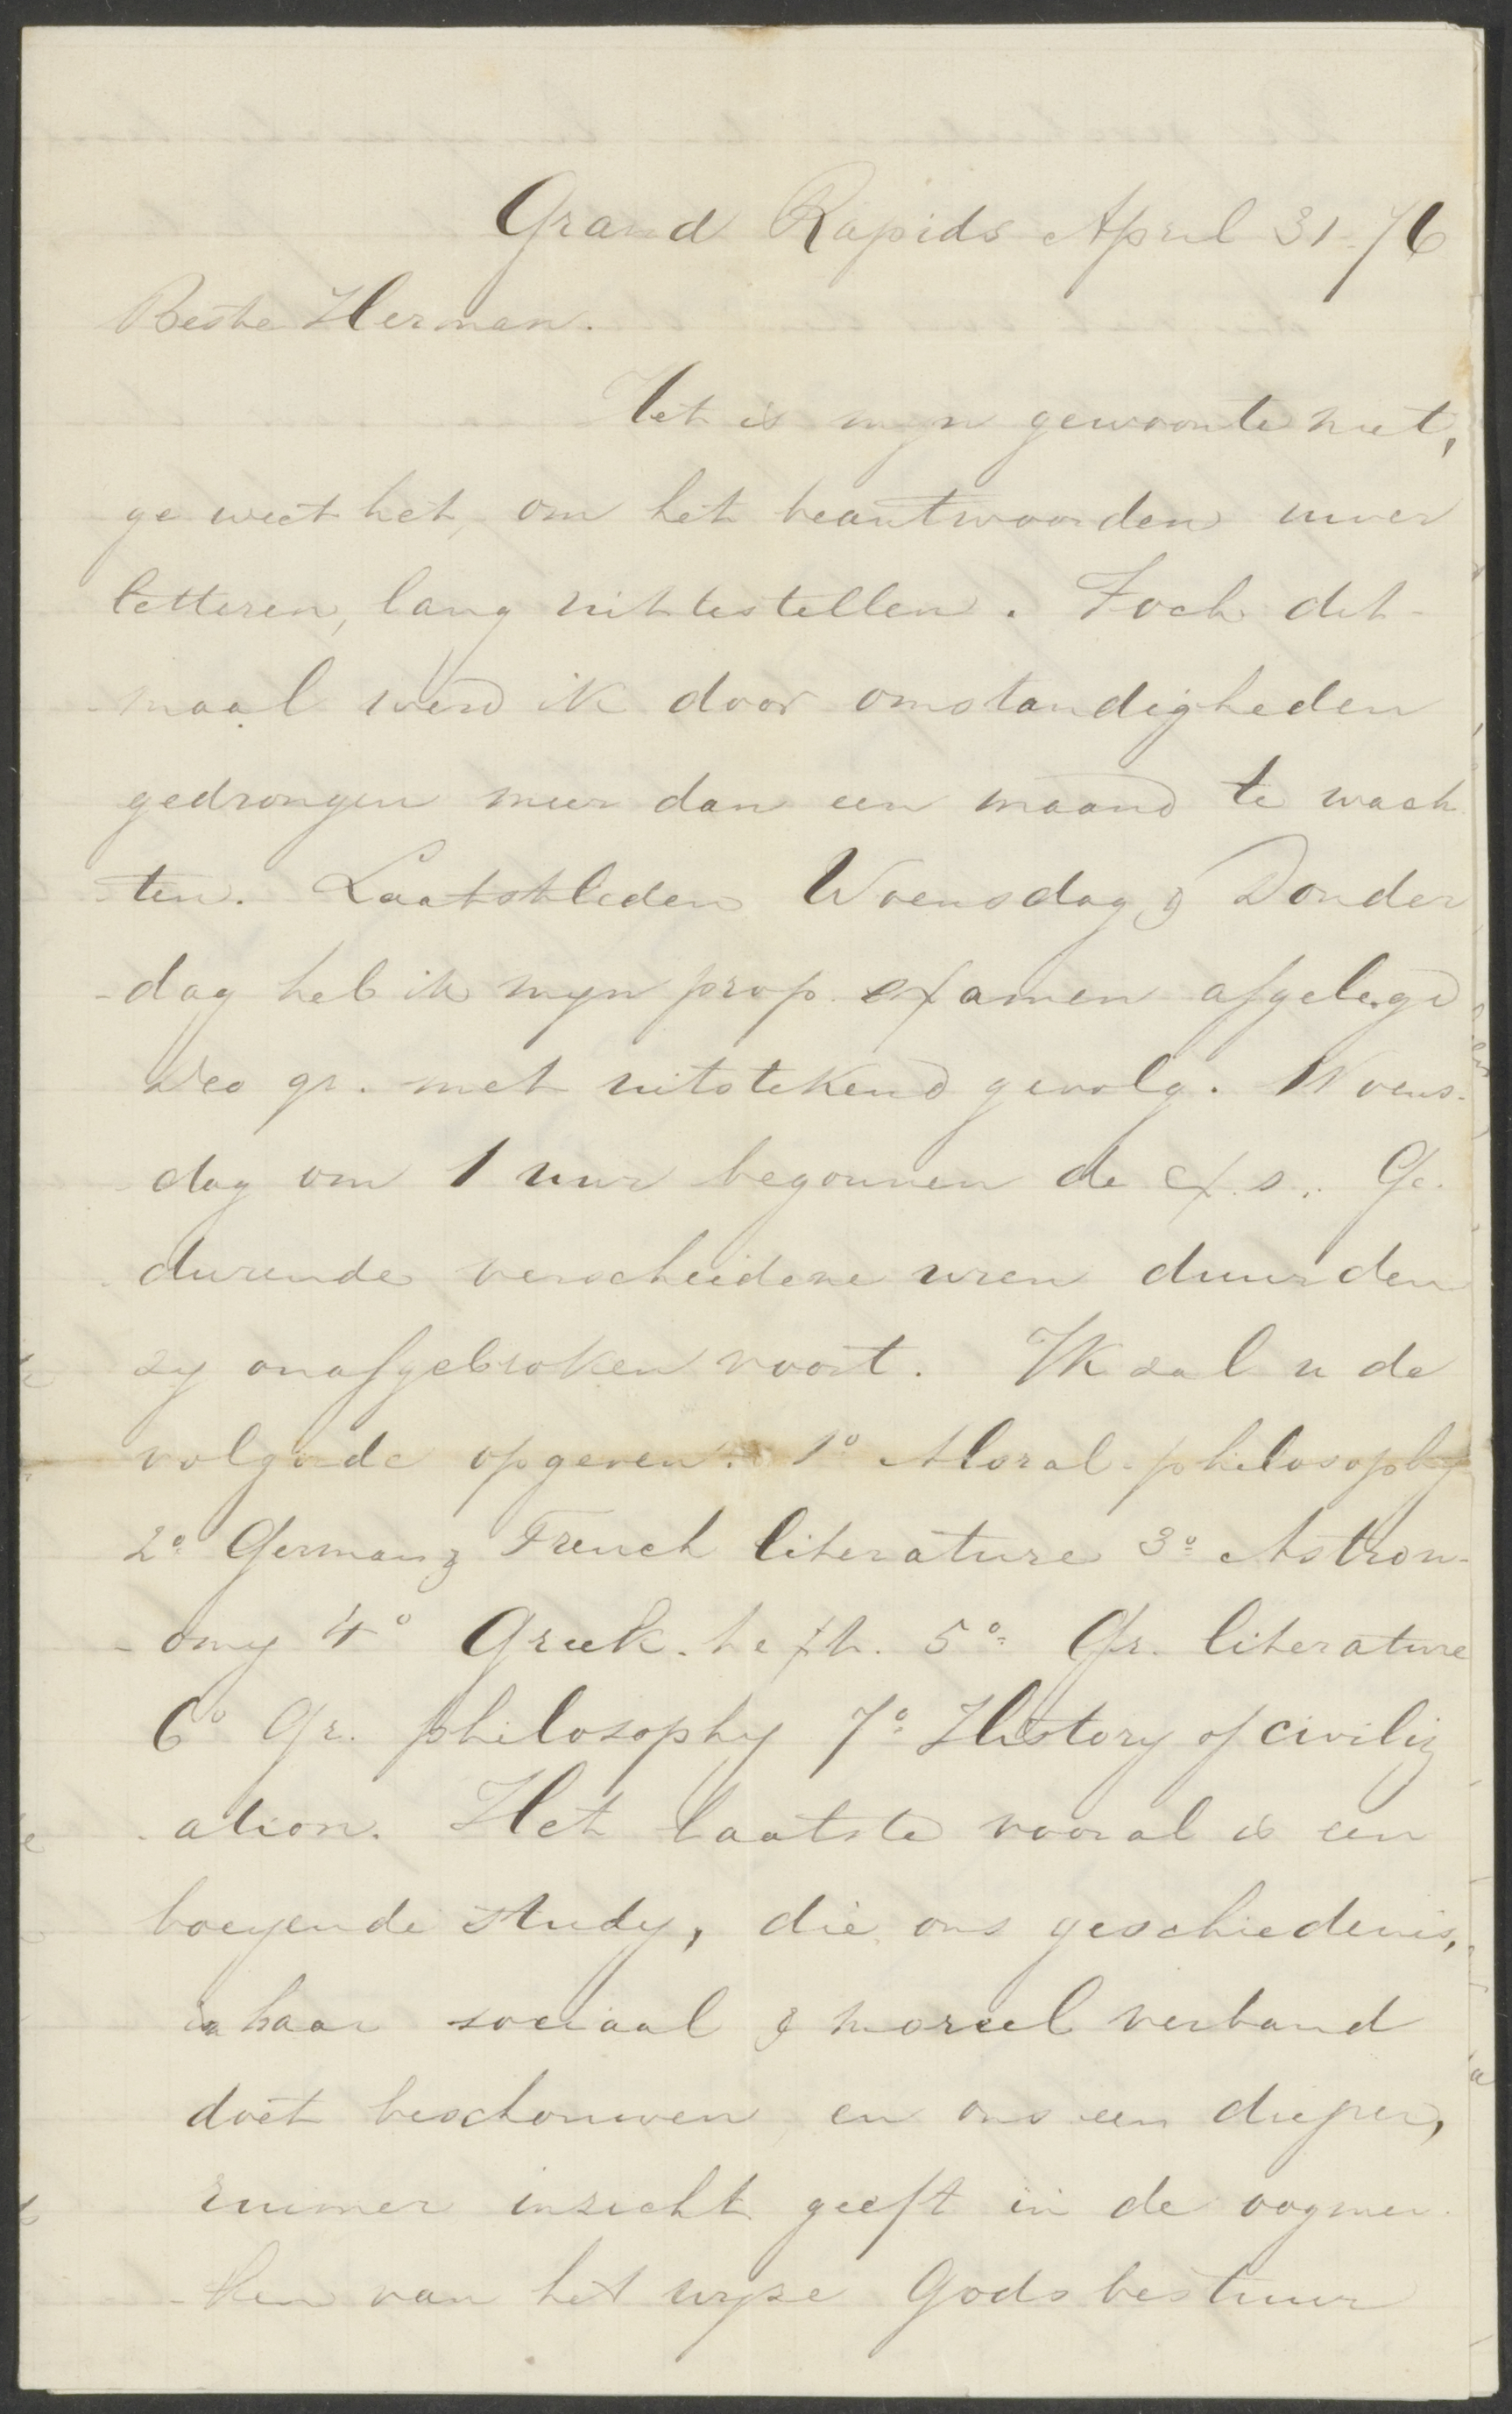 Grand Rapids April 31-76
Beste Herman.
Het is myn gewoonte niet,
ge weet het, om het beantwoorden uwer
letteren, lang uittestellen. Toch dit-
maal werd ik door omstandigheden
gedrongen meer dan een maand te wach
ten. Laatstleden Woensdag & Donder
-dag heb ik myn prop. examen afgelegd
Deo gr. met uitstekend gevolg. Woens-
dag om 1 uur begonnen de ex.s. Ge-
durende verscheidene uren duurden
zy onafgebroken voort. Ik zal u de
volgende opgeven. 1° Moral-philosophy
2° German & French literature 3° Astron-
-omy 4° Greek. 5° Gr. literature
6° Gr. philosophy 7° History of civiliz
-ation. Het laatste vooral is een
boeyende study, die ons geschiedenis,
in haar sociaal & moreel verband
doet beschouwen en ons een dieper,
ruimer inzicht geeft in de oogmer-
-ken van het wyze Godsbestuur